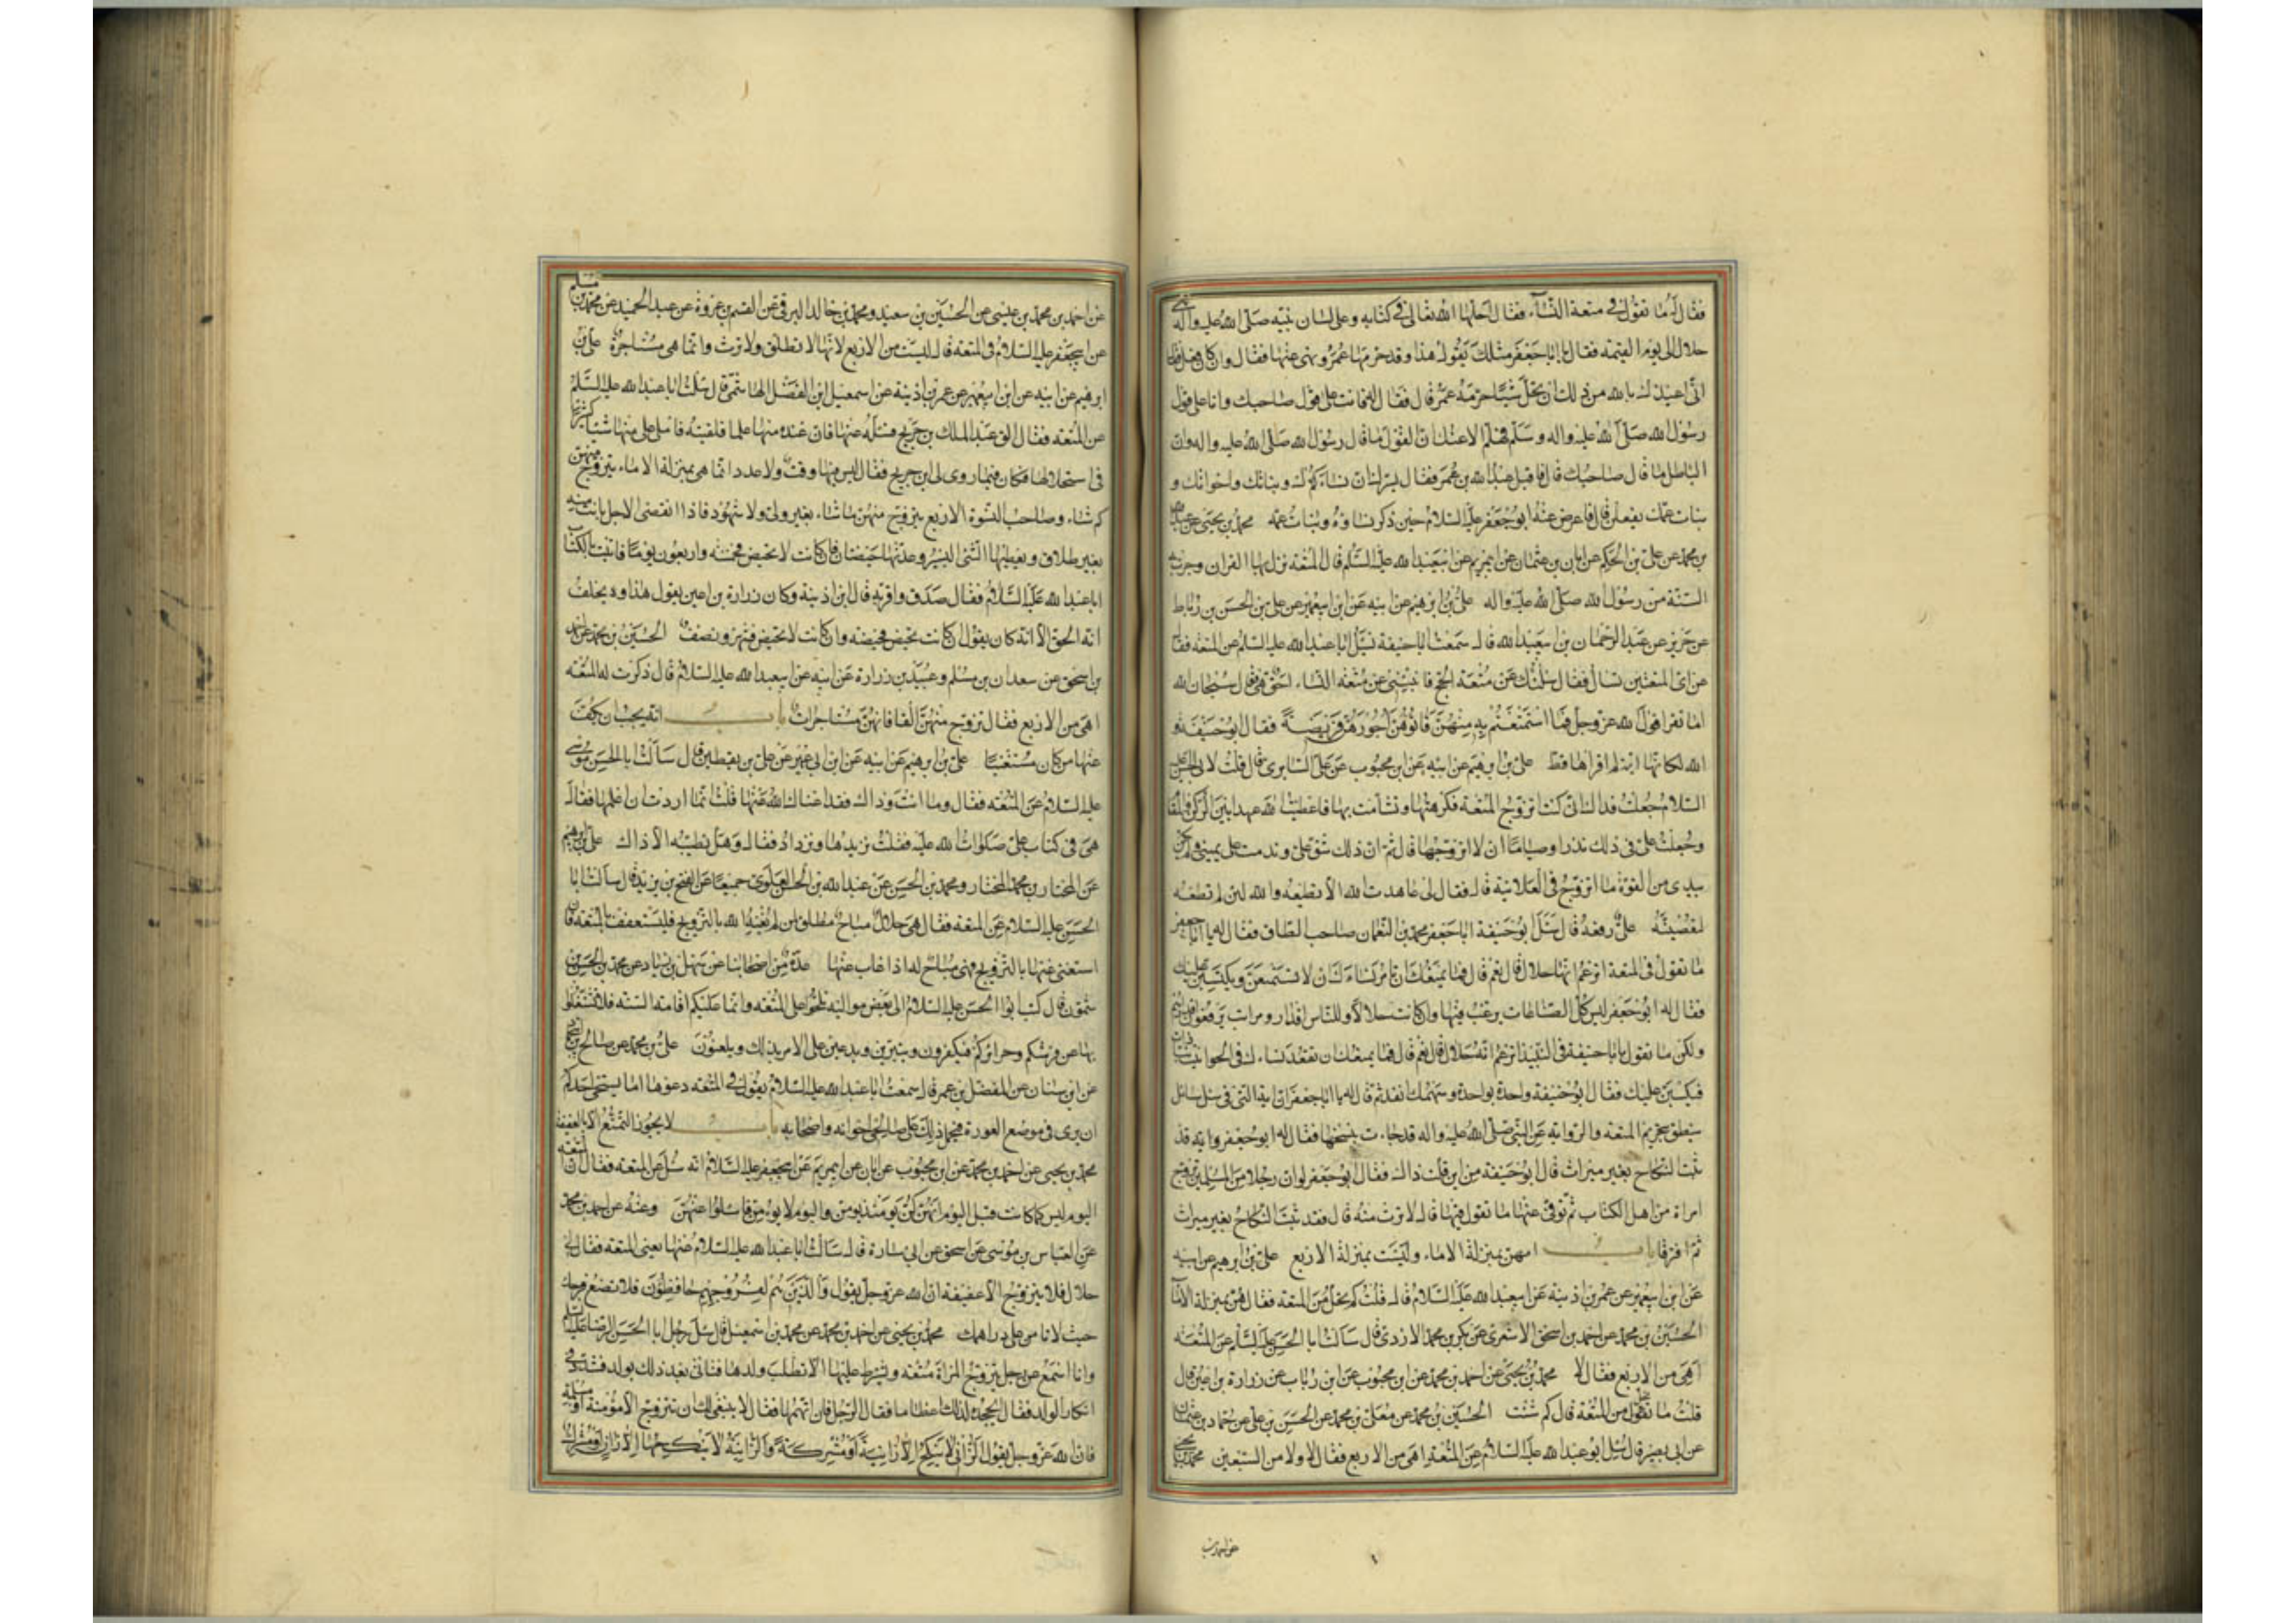 فقال له ما تقول في متعة النساء فقال احلها الله تعالى في كتابه وعلى لسان نبيه صلى الله عليه وآله فهي
حلال الى يوم القيمة فقال يا ابا جعفر مثلك يقول هذا وقد حرمها عمر ونهى عنها فقال وان كان فعل فقال
انى اعيذك بالله من ذلك ان تحل شيئا حرمه عمر قال فقال له فانت على قول صاحبك وانا على قول
رسول الله صلى الله عليه واله وسلم فهلم الاعنك ان القول ما قال رسول الله صلى الله عليه واله وان
الباطل ما قال صاحبك قال فاقبل عبد الله بن عمر فقال يسرك ان نساءك وبناتك واخواتك و
بنات عمك يفعلن قال فاعرض عنه ابو جعفر عليه السلام حين ذكر نساءه وبنات عمه محمد بن يحيى عن عبد الله
بن محمد عن على بن الحكم عن ابان بن عثمان عن ابى مريم عن ابيعبد الله عليه السلم قال المتعة نزل بها القران وجرت بها
السنة من رسول الله صلى الله عليه واله على بن ابرهيم عن ابيه عن ابن ابيعمير عن على بن الحسن بن رباط
عن حريز عن عبد الرحمان بن ابيعبد الله قال سمعت ابا حنيفة يسئل ابا عبد الله عليه السلم عن المتعة فقال
عن اى المتعتين تسال فقال سئلتك عن متعة الحج فانبئنى عن متعة النساء احق هى فقال سبحان الله
اما تقرا قول الله عز وجل فما استمتعتم به منهن فاتوهن اجورهن فريضة فقال ابو حنيفة و
الله لكانها اية لم اقراها قط على بن ابرهيم عن ابيه عن ابن محبوب عن على السابرى قال قلت لابى الحسن عليه
السلام جعلت فداك انى كنت اتزوج المتعة فكرهتها وتشامت بها فاعطيت الله عهدا بين الركن والمقام
وجعلت على في ذلك نذرا وصياما ان لا اتزوجها قال ثم ان ذلك شق على وندمت على يمينى ولم يكن
بيدى من القوة ما اتزوج في العلانية قال فقال لى عاهدت الله الا تطيعه والله لئن لم تطعه
لتعصينه على رفعه قال سئل ابو حنيفة ابا جعفر محمد بن النعمان صاحب الطاق فقال له يا ابا جعفر
ما تقول في المتعة اتزعم انها حلال قال نعم قال فما يمنعك ان تامر نساءك ان لا تستمتعن ويكتسبن عليك
فقال له ابو جعفر ليس كل الصناعات يرغب فيها وان كانت حلالا وللناس اقدار ومراتب يرفعون اقدارهم
ولكن ما تقول يا ابا حنيفة في النبيذ اتزعم انه حلال قال نعم قال فما يمنعك ان تقعد نساءك في الحوانيت نباذات
فيكسبن عليك فقال ابو حنيفة واحدة بواحدة وسهمك انفذ ثم قال له يا ابا جعفر ان اية التى في سئل سائل
ينطق بتحريم المتعة والرواية عن النبى صلى الله عليه واله قد جاءت بنسخها فقال له ابو جعفر واية قد
ثبت النكاح بغير ميراث قال ابو حنيفة من اين قلت ذاك فقال ابو جعفر لو ان رجلا من المسلمين تزوج
امراة من اهل الكتاب ثم توفى عنها ما تقول فيها قال لا ترث منه قال فقد ثبت النكاح بغير ميراث
ثم افترقا باب انهن بمنزلة الاماء وليست بمنزلة الاربع على بن ابرهيم عن ابيه
عن ابن ابيعمير عن عمر بن اذينة عن ابيعبد الله عليه السلام قال قلت كم يحل من المتعة فقال هن بمنزلة الاماء
الحسين بن محمد عن احمد بن اسحق الاشعرى عن بكر بن محمد الازدى قال سالت ابا الحسن عليه السلم عن المتعة
اهى من الاربع فقال لا محمد بن يحيى عن احمد بن محمد عن ابن محبوب عن ابن رئاب عن زرارة بن اعين قال
قلت ما يحل من المتعة قال كم شئت الحسين بن محمد عن معلى بن محمد عن الحسن بن على عن حماد بن عثمان
عن ابى بصير قال سئل ابو عبد الله عليه السلام عن المتعة اهى من الاربع فقال لا ولا من السبعين محمد بن يحيى
عن احمد بن
عن احمد بن محمد بن عيسى عن الحسين بن سعيد ومحمد بن خالد البرقى عن القسم بن عروة عن عبد الحميد عن محمد بن مسلم
عن ابيجعفر عليه السلام في المتعة قال ليست من الاربع لانها لا تطلق ولا ترث وانما هى مستاجرة على بن
ابرهيم عن ابيه عن ابن ابيعمير عن عمر بن اذينة عن اسمعيل بن الفضل الهاشمى قال سئلت ابا عبد الله عليه السلم
عن المتعة فقال الق عبد الملك بن جريج فسئله عنها فان عنده منها علما فلقيته فاملى على منها شيئا كثيرا
في استحلالها فكان فيما روى لى ابن جريج فقال ليس فيها وقت ولا عدد انما هى بمنزلة الاماء يتزوج منهن
كم شاء وصاحب النسوة الاربع يتزوج منهن ما شاء بغير ولى ولا شهود فاذا انقضى الاجل بانت منه
بغير طلاق ويعطيها الشئ اليسير وعدتها حيضتان فان كانت لا تحيض فخمسة واربعون يوما فاتيت بالكتاب
ابا عبد الله عليه السلام فقال صدق واقر به قال ابن اذينة وكان زرارة بن اعين يقول هذا ويحلف
انه الحق الا انه كان يقول ان كانت تحيض فحيضة وان كانت لا تحيض فشهر ونصف الحسين بن محمد عن احمد
بن اسحق عن سعدان بن مسلم وعبيد بن زرارة عن ابيه عن ابيعبد الله عليه السلام قال ذكرت له المتعة
اهى من الاربع فقال تزوج منهن الفا فانهن مستاجرات باب انه يجب ان يكف
عنها من كان مستغنيا على بن ابرهيم عن ابيه عن ابن ابى عمير عن على بن يقطين قال سالت ابا الحسن موسى
عليه السلام عن المتعة فقال وما انت وذاك فقد اغناك الله عنها قلت انما اردت ان اعلمها فقال
هى في كتاب على صلوات الله عليه فقلت نزيدها ونزداد فقال وهل يطيبه الا ذاك على بن ابرهيم
عن المختار بن محمد المختار ومحمد بن الحسن عن عبد الله بن الحسن العلوى جميعا عن الفتح بن يزيد قال سالت ابا
الحسن عليه السلام عن المتعة فقال هى حلال مباح مطلق لمن لم يغنه الله بالتزويج فليستعفف بالمتعة فان
استغنى عنها بالتزويج فهى مباح له اذا غاب عنها عدة من اصحابنا عن سهل بن زياد عن محمد بن الحسن بن
شمون قال كتب ابو الحسن عليه السلام الى بعض مواليه لا تلحوا على المتعة وانما عليكم اقامة السنة فلا تشتغلوا
بها عن فرشكم وحرائركم فيكفرن ويتبرين ويدعين على الامر بذلك ويلعنون على بن محمد عن صالح بن ابى حماد
عن ابن سنان عن المفضل بن عمر قال سمعت ابا عبد الله عليه السلام يقول في المتعة دعوها اما يستحى احدكم
ان يرى في موضع العورة فيحمل ذلك على صالحى اخوانه واصحابه باب لا يجوز التمتع الا بالعفيفة
محمد بن يحيى عن احمد بن محمد عن ابن محبوب عن ابان عن ابى مريم عن ابيجعفر عليه السلام انه سئل عن المتعة فقال ان المتعة
اليوم ليس كما كانت قبل اليوم انهن كن يومئذ يومن واليوم لا يومن فاسئلوا عنهن وعنه عن احمد بن محمد
عن العباس بن موسى عن اسحق عن ابى سارة قال سالت ابا عبد الله عليه السلام عنها يعنى المتعة فقال لى
حلال فلا يتزوج الا عفيفة ان الله عز وجل يقول والذين هم لفروجهم حافظون فلا تضع فرجك
حيث لا تامن على دراهمك محمد بن يحيى عن احمد بن محمد عن محمد بن اسمعيل قال سئل رجل ابا الحسن الرضا عليه السلام
وانا اسمع عن رجل يتزوج المراة متعة ويشترط عليها الا تطلب ولدها فتاتى بعد ذلك بولد فشدد في
انكار الولد فقال ايجحده لذلك اعظاما فقال الرجل فان اتهمها فقال لا ينبغى لك ان تتزوج الا مؤمنة او مسلمة
فان الله عز وجل يقول الزانى لا ينكح الا زانية او مشركة والزانية لا ينكحها الا زان او مشرك